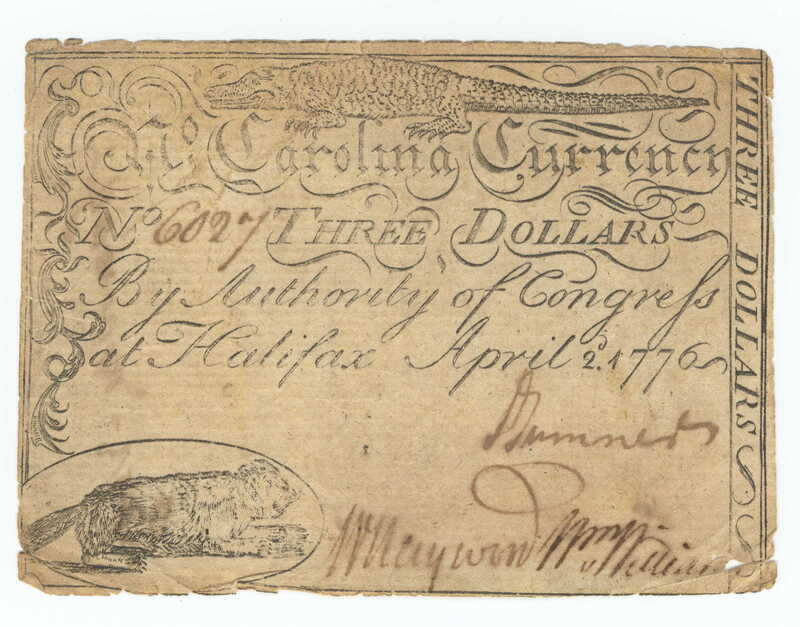 No Carolina Currency
No 6027 THREE DOLLARS
By Authority of Congress
at Halifax April 2d. 1776
THREE DOLLARS
J Sumner
W Haywood Wm Williams